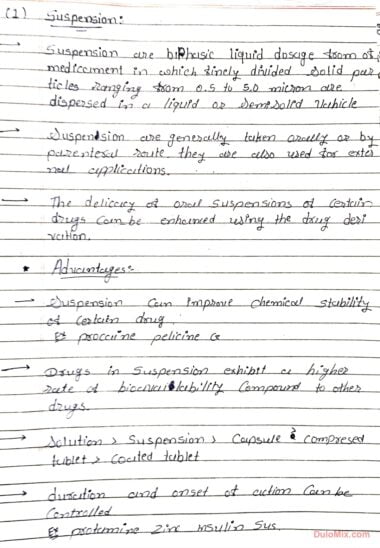 (1) Suspension:
→ Suspension are biphasic liquid dosage from of
medicament in which finely divided solid par
ticles ranging from 0.5 to 5.0 micron are
dispersed in a liquid or semisolid vehicle
→ Suspension are generally taken orally or by
parenteral route, they are also used for exter
nal applications.
→ The delicacy of oral suspensions of certain
drugs can be enhanced using the drug deri
vation.
* Advantages:-
→ Suspension can improve chemical stability
of certain drug.
Ex procaine pelicine G
→ Drugs in suspension exhibit a higher
rate of bioavailability compound to other
drugs.
→ Solution > Suspension > Capsule & compresed
tablet > coated tablet
→ duration and onset of action can be
controlled
Ex protamine zinc insulin sus.
DuloMix.com